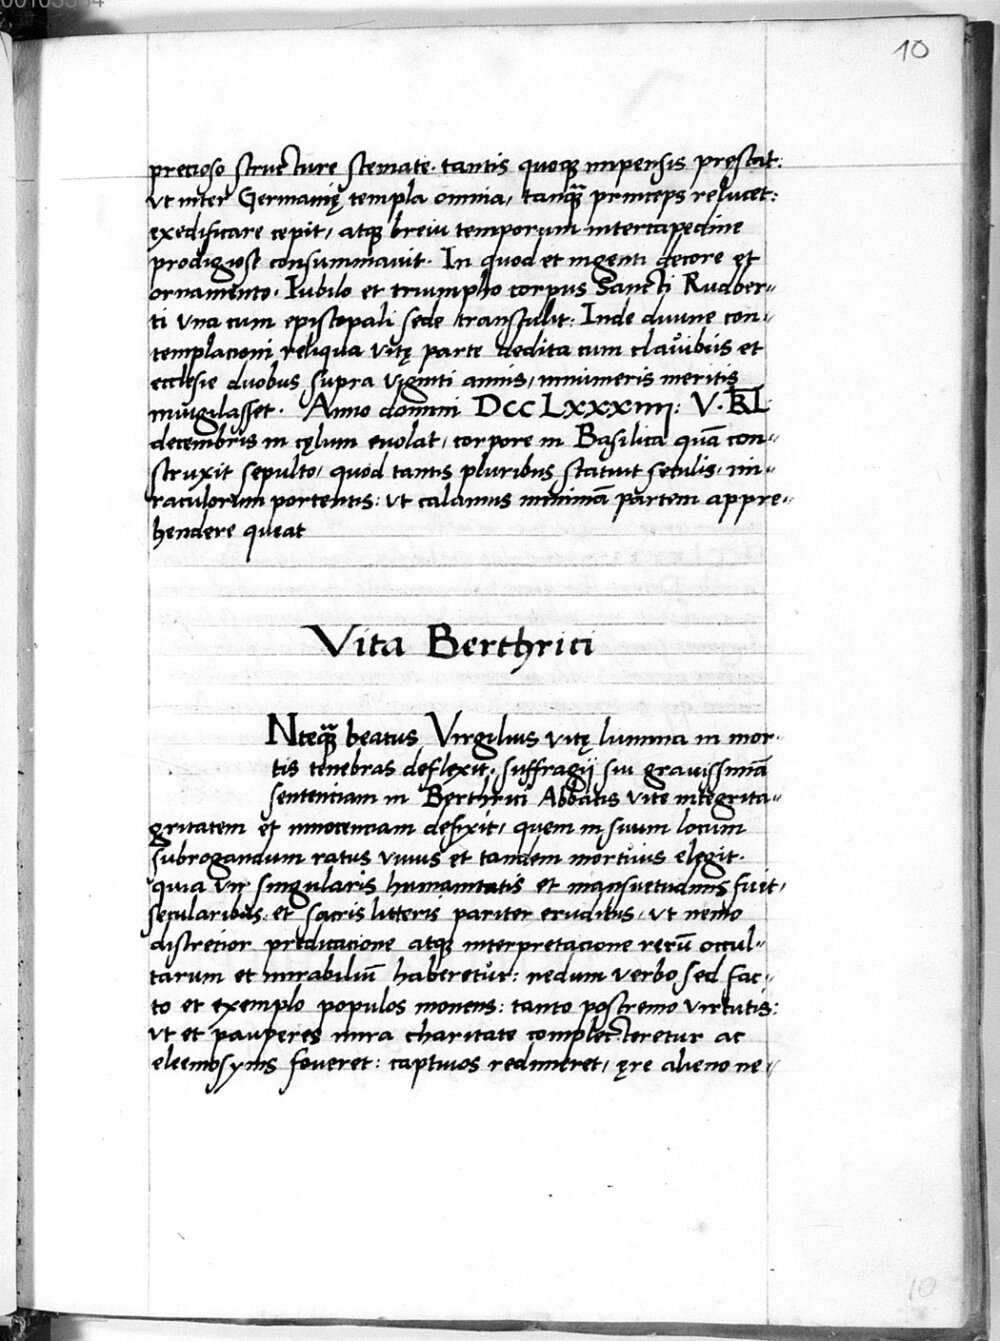 10
precioso structure stemate. tantis quoqꝫ impensis prestat:
vt inter Germanię templa omnia, tanqꝫ princeps relucet:
exedificare cepit, atqꝫ breui temporum intercapedine
prodigiose consummauit. In quod et ingenti decore et
ornamento. Iubilo et triumpho corpus Sancti Rudber-
ti vna cum episcopali sede transtulit: Inde diuine con-
templacioni reliqua vitę parte dedita cum clauibus et
ecclesie duobus supra viginti annis, innumeris meritis
inuigilasset. Anno domini DccLxxxiiij: V. kL
decembris in cęlum euolat, corpore in Basilica quā con-
struxit sepulto, quod tantis pluribus statuit seculis, mi-
raculorum portentis: vt calamus minimā partem appre-
hendere queat
Vita Berthrici
Nteqꝫ beatus Virgilius vitę lumina in mor-
tis tenebras deflexit. suffragij sui grauissimā
sentenciam in Berthrici Abbatis vite integrita-
gritatem et innocenciam defixit, quem in suum locum
subrogandum ratus viuus et tandem mortuus elegit.
quia vir singularis humanitatis et mansuetudinis fuit,
secularibus et sacris litteris pariter eruditus, vt nemo
discretior predicacione atqꝫ interpretacione rerū occul-
tarum et mirabiliū haberetur: nedum verbo sed fac-
to et exemplo populos monens: tanto postremo virtutis:
vt et pauperes mira charitate complecteretur ac
eleemosynis foveret: captiuos redimeret, ęre alieno ne-
10